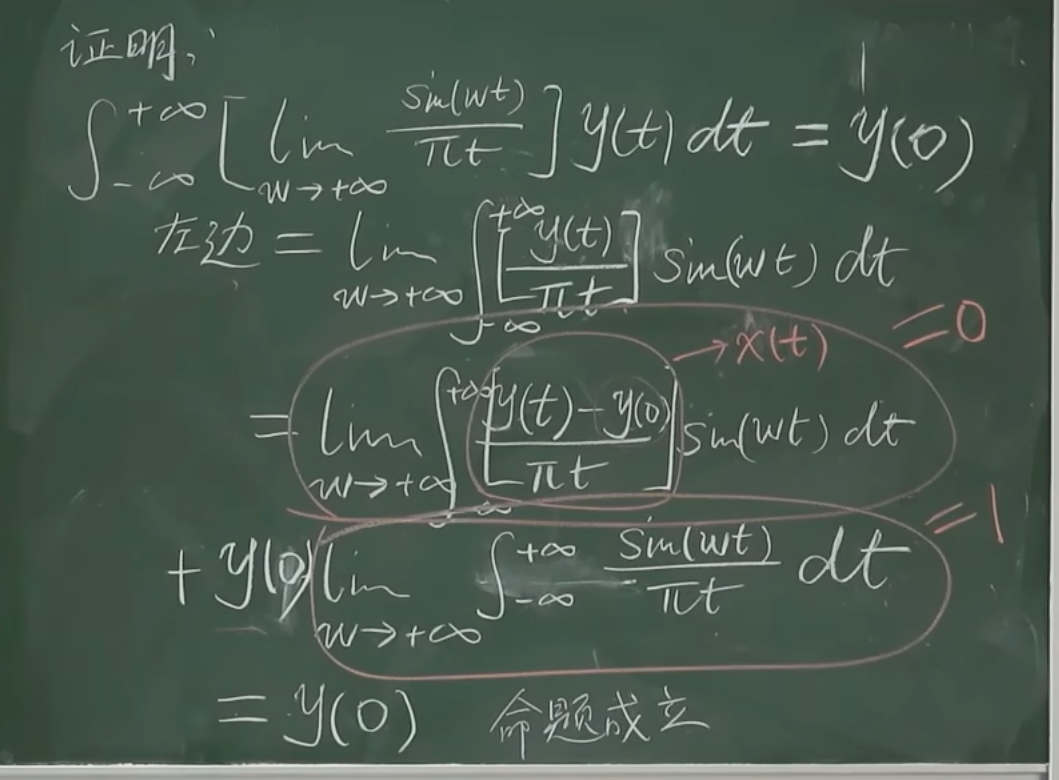 证明:
∫_{-∞}^{+∞} [lim_{w→+∞} sin(wt)/πt] y(t) dt = y(0)
左边 = lim_{w→+∞} ∫_{-∞}^{+∞} [y(t)/πt] sin(wt) dt
= lim_{w→+∞} ∫_{-∞}^{+∞} [(y(t)-y(0))/πt] sin(wt) dt → x(t) =0
+ y(0) lim_{w→+∞} ∫_{-∞}^{+∞} sin(wt)/πt dt =1
= y(0) 命题成立